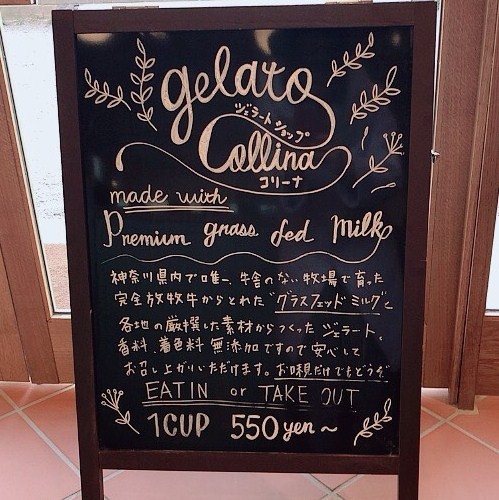 gelato
ジェラートショップ
Collina
コリーナ
made with
Premium grass fed Milk
神奈川県内で唯一、牛舎のない牧場で育った
完全放牧牛からとれた"グラスフェッドミルク"と
各地の厳選した素材からつくったジェラート。
香料、着色料 無添加ですので安心して
お召し上がりいただけます。お味見だけでもどうぞ
EAT IN or TAKE OUT
1CUP 550 yen 〜